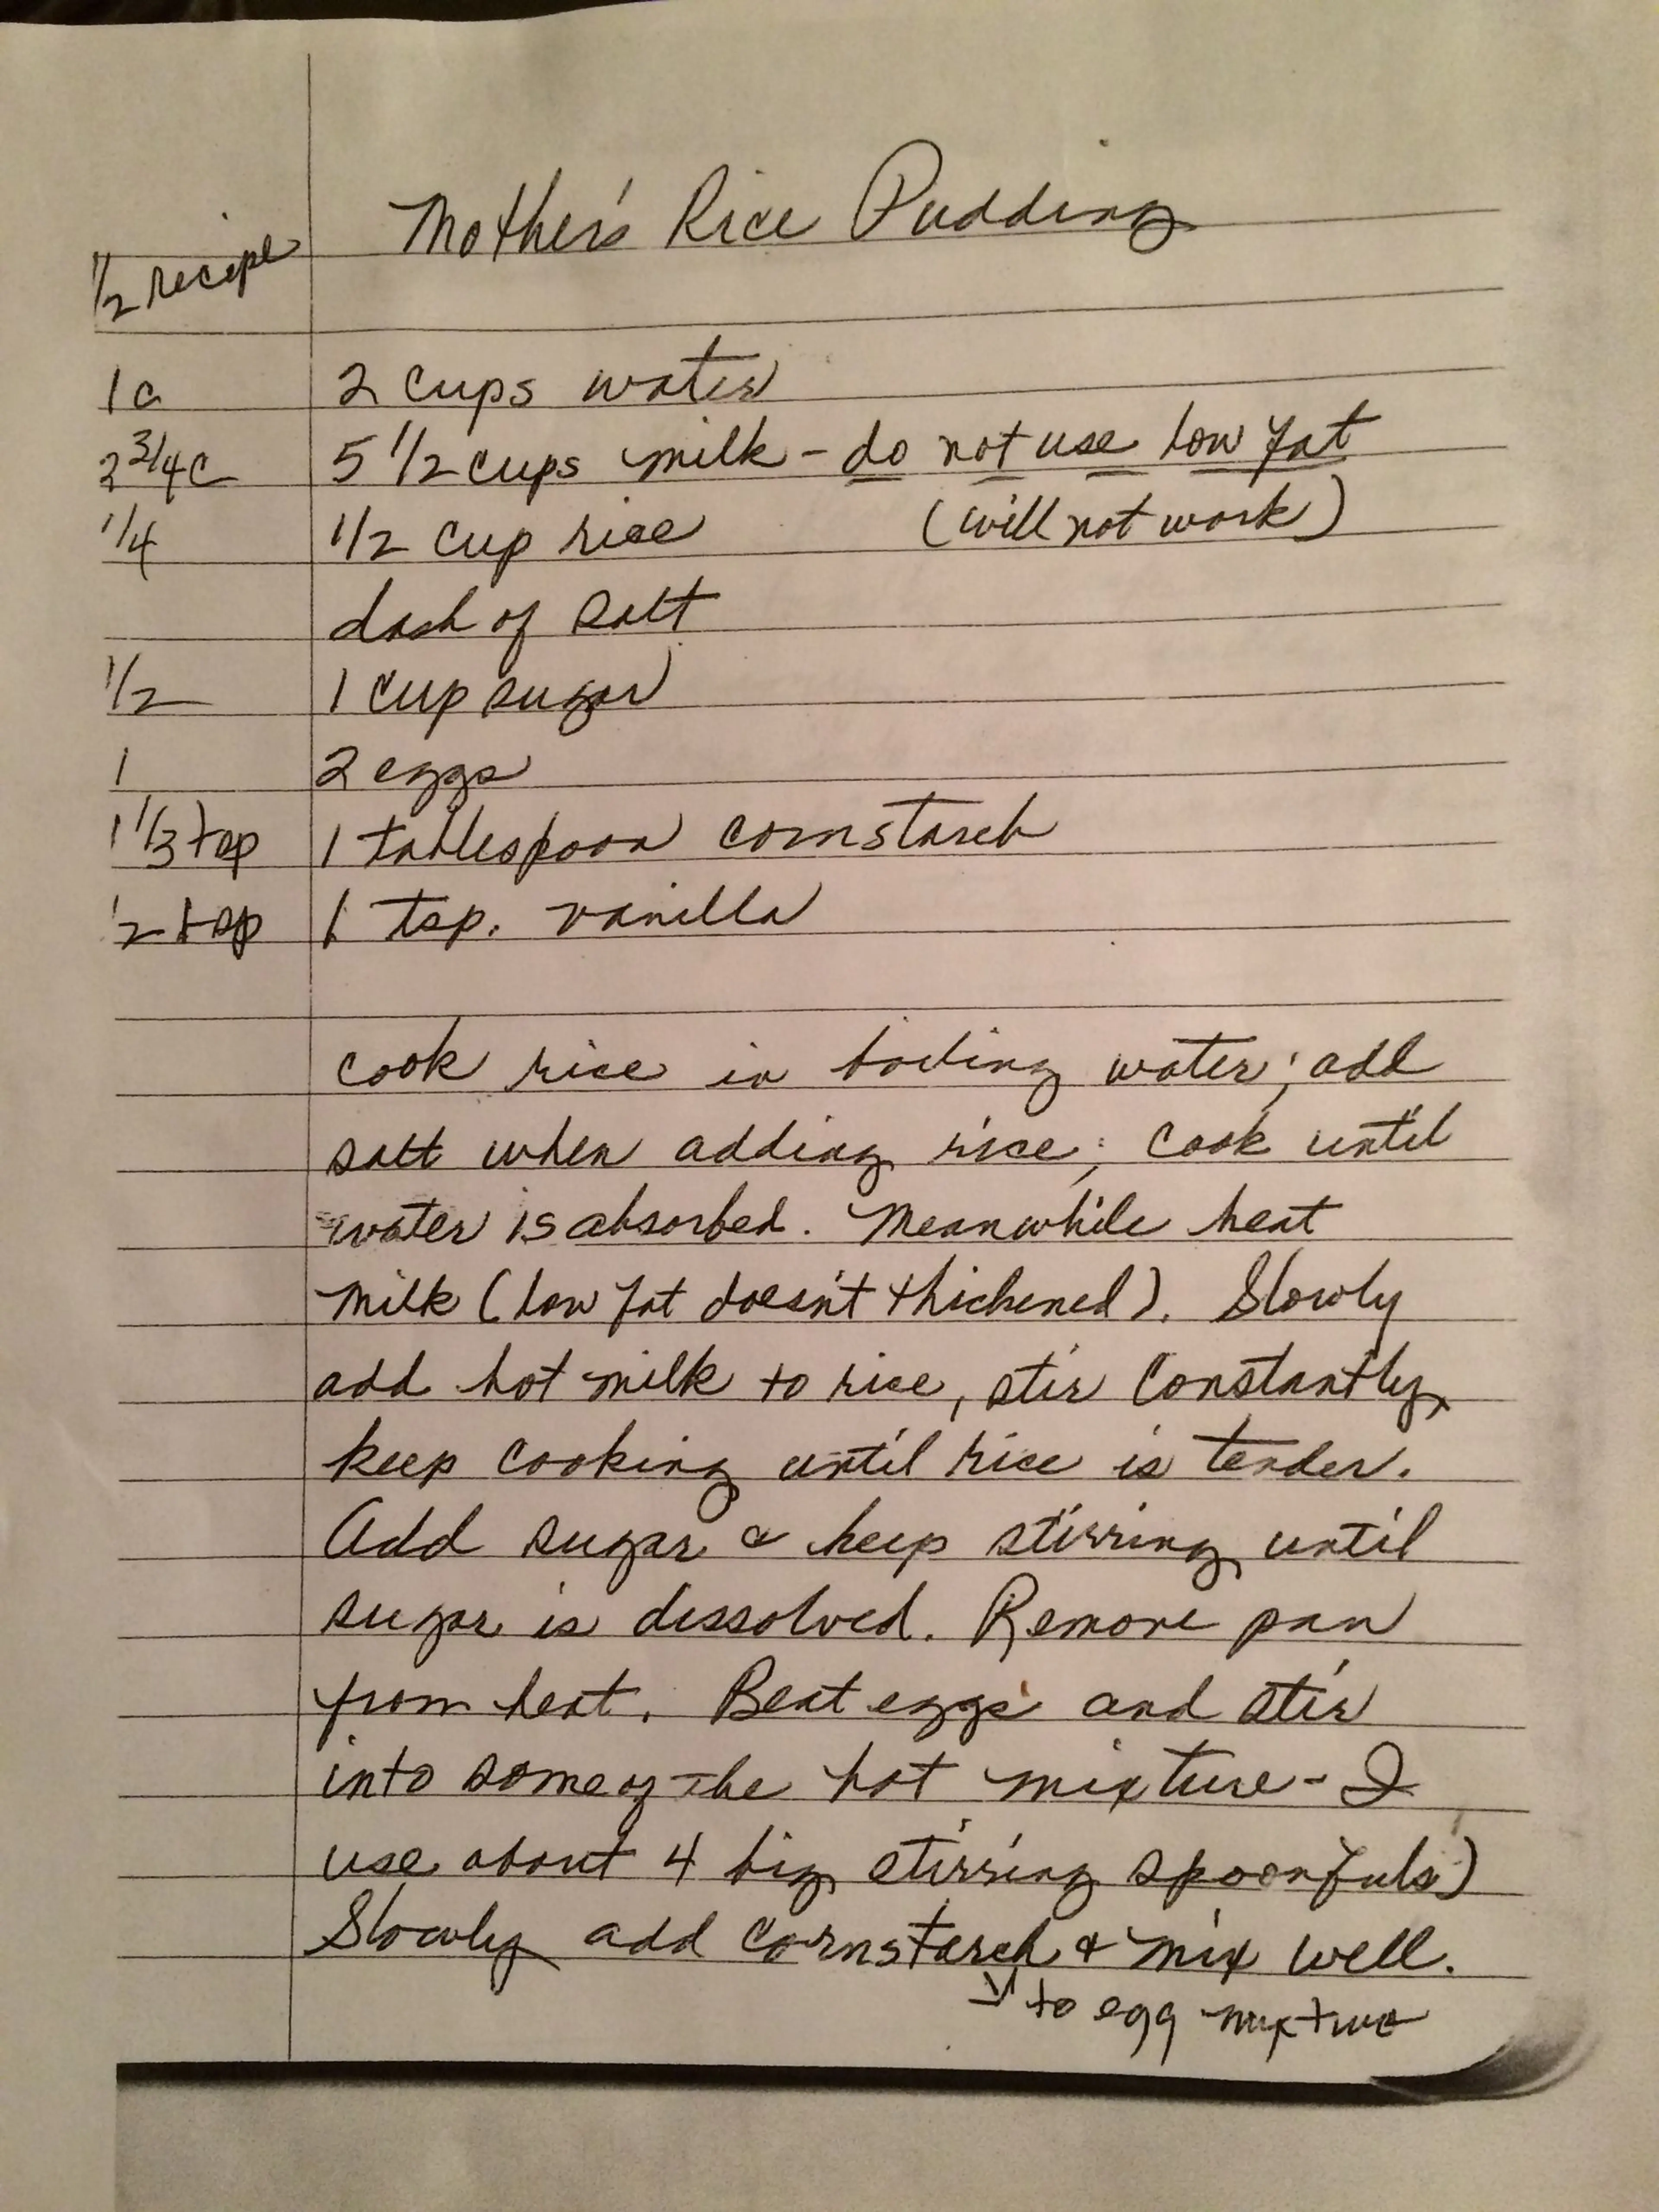 Mother's Rice Pudding
1/2 recipe
1c 2 cups water
2 3/4c 5 1/2 cups milk - do not use low fat
1/4 1/2 cup rice (will not work)
dash of salt
1/2 1 cup sugar
1 2 eggs
1 1/3 tsp 1 tablespoon cornstarch
1/2 tsp 1 tsp. vanilla
cook rice in boiling water; add
salt when adding rice; cook until
water is absorbed. Meanwhile heat
milk (low fat doesn't thickened). Slowly
add hot milk to rice, stir constantly,
keep cooking until rice is tender.
Add sugar & keep stirring until
sugar is dissolved. Remove pan
from heat. Beat eggs and stir
into some of the hot mixture - I
use about 4 big stirring spoonfuls)
Slowly add cornstarch & mix well.
to egg mixture